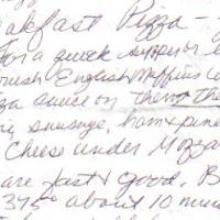 akfast Pizza -
for a quick supper
English Muffins
za sauce on them th
sausage, ham &
Cheese under Mozza
are fast & good. B
375° about 10 minu